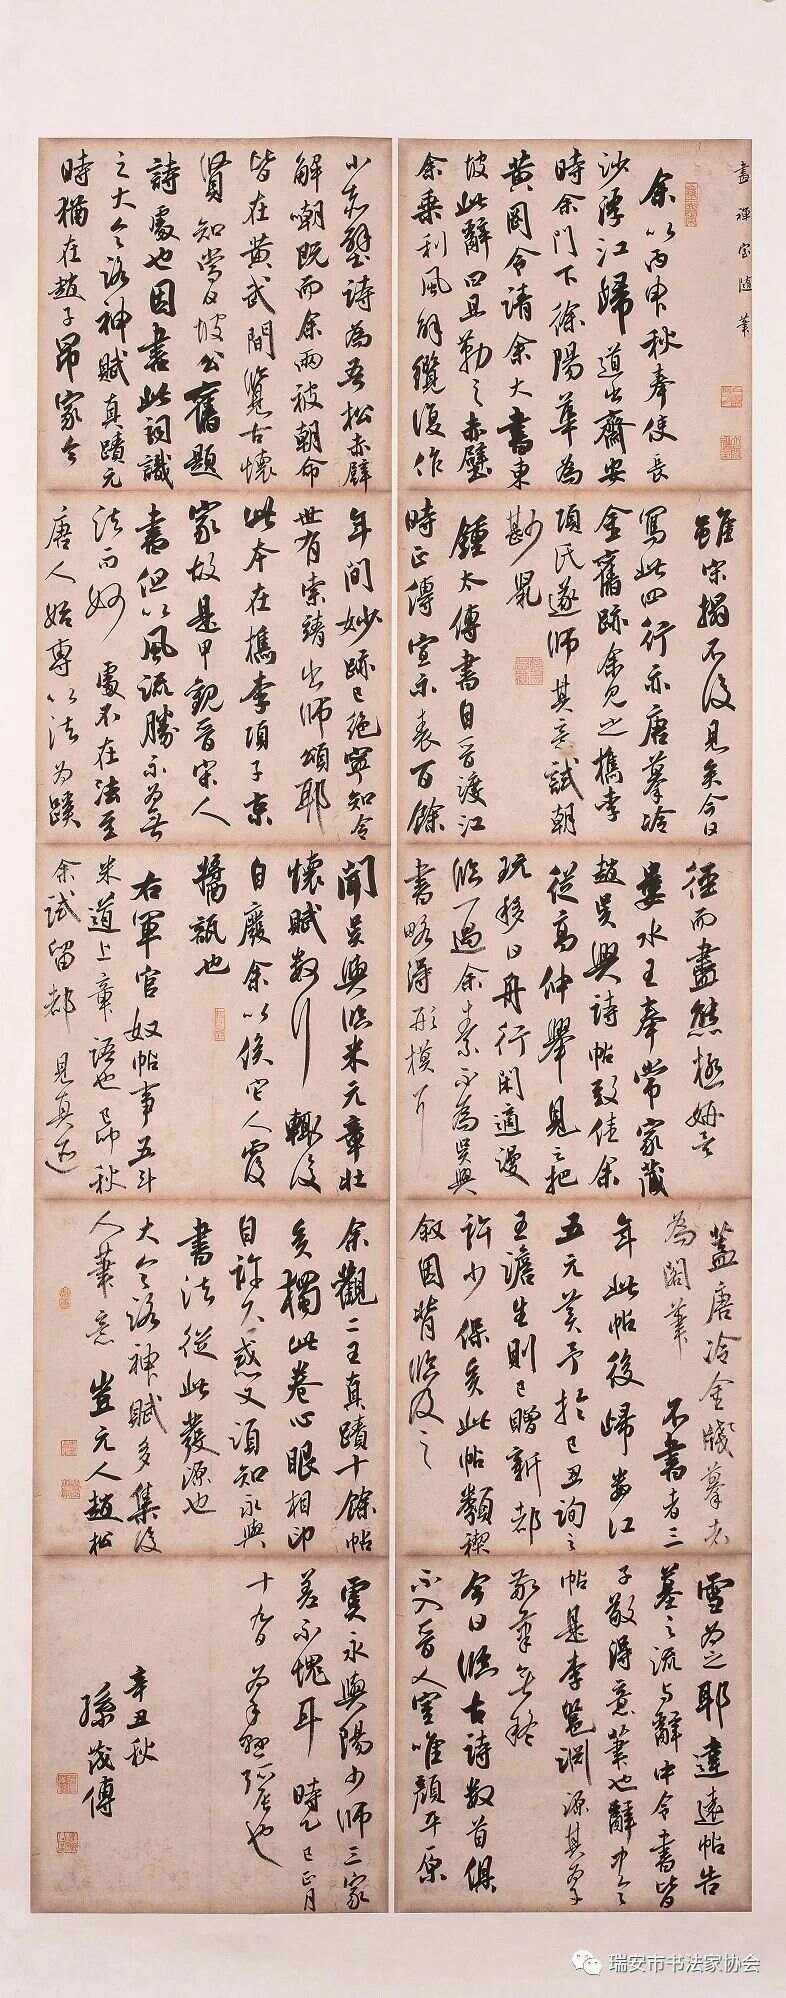 畫禪室隨筆
余以丙申秋奉使長
沙浮江歸道出齊安
時余門下徐陽華為
黃岡令請余大書東
坡此辭曰且勒之赤壁
余乘利風解纜復作
小赤壁詩為吾松赤壁
解嘲既而余兩被朝命
皆在黃武間覽古懷
賢知當日坡公舊題
詩處也因書此詞識
之大令洛神賦真蹟元
時猶在趙子昂家今
雖宋搨不復見矣今日
寫此四行亦唐摹冷
金舊跡余見之檇李
項氏遂師其意試朝
鮮鼠
鍾太傅書自晉渡江
時止傳宣示表百餘
年間妙跡已絕寧知今
世有索靖出師頌耶
此本在檇李項子京
家故是甲觀晉宋人
書但以風流勝不為無
法而妙處不在法至
唐人始專以法為蹊
徑而盡態極妍矣
婁水王奉常家藏
趙吳興詩帖致佳余
從高仲舉見之把
玩移日舟行閑適漫
臨一過余素不為吳興
書略得形模耳
聞吳興臨米元章壯
懷賦數行輒復
自廢余以俟它人覆
醬瓿也
右軍官奴帖事五斗
米道上章語也己卯秋
余試留都見真跡
蓋唐冷金牋摹者
為閣筆不書者三
年此帖後歸婁江
王元美予於己丑詢之
王澹生則已贈新都
許少保矣此帖類禊
敘因背臨及之
余觀二王真蹟十餘帖
矣獨此卷心眼相印
自許不惑又須知永興
書法從此發源也
大令洛神賦多集後
人筆意豈元人趙松
雪為之耶違遠帖告
墓之流與辭中令書皆
子敬得意筆也辭中令
帖是李懿淵源其草
敬筆無疑
今日臨古詩數首俱
不入晉人室唯顏平原
虞永興陽少師三家
差不愧耳時乙巳正月
十九日
辛丑秋
孫茂傳
瑞安市书法家协会